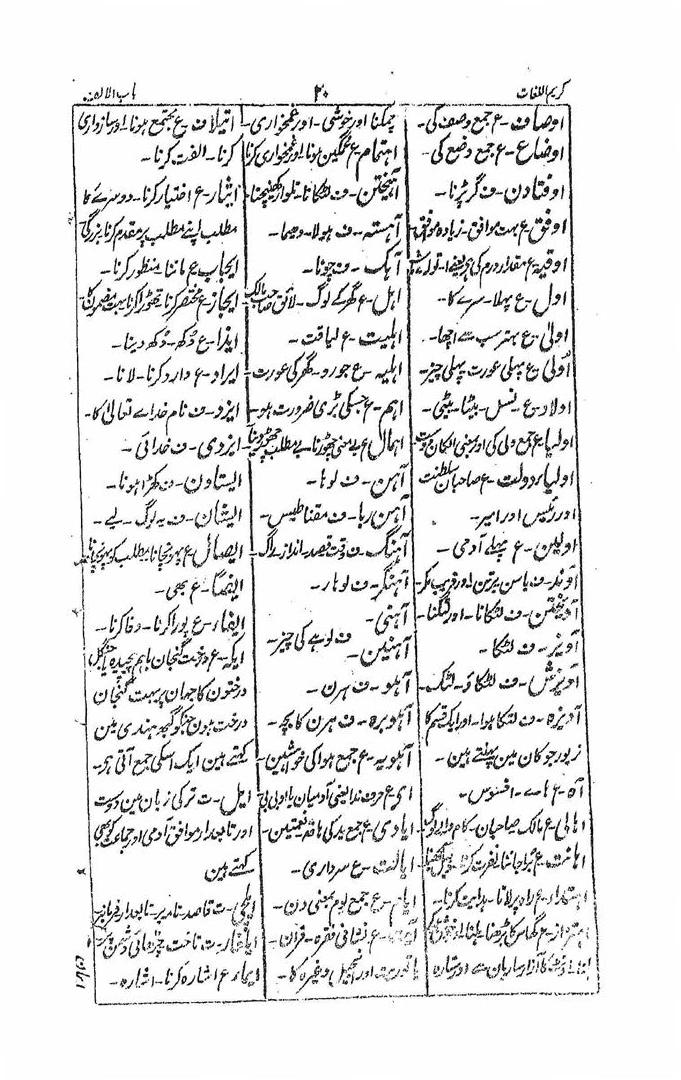 کریم اللغات
۳۰
باب الالف
اوصاف۔ ع جمع وصف کی۔
اوضاع۔ ع جمع وضع کی۔
اوفتادن۔ ف گر پڑنا۔
اوفق۔ ع بہت موافق۔ زیادہ موافق
اوقیہ ع مقدار درم کی
اول۔ ع پہلا۔ سرے کا۔
اولیٰ۔ ع بہتر سب سے اچھا۔
اُولی۔ ع پہلی عورت پہلی چیز۔
اولاد۔ ع۔ نسل۔ بیٹا۔ بیٹی۔
اولیا۔ ع جمع ولی کی اور
اولیاء دولت۔ ع صاحبان سلطنت
اور رئیس اور امیر۔
اولین۔ ع پہلے آدمی۔
آوند۔ ف باسن برتن اور
آویختن۔ ف لٹکانا۔ اور لٹکنا۔
آویز۔ ف لٹکا۔
آویزش۔ ف لٹکاؤ۔ لٹک۔
آویزہ۔ ف لٹکا ہوا۔ اور ایک قسم کا
زیور جو کان مین پہنتے ہین۔
آہ۔ ع ہاے۔ افسوس۔
اہالی۔ ع مالک صاحبان۔ کام والے لوگ
اہانت۔ ع بُرا جاننا نفرت کرنا۔
اہتداء۔ ع راہ پر لانا۔ ہدایت کرنا۔
اہتزاز۔ ع گھاس کا بڑھنا ہلنا
اونٹ کا آواز ساربان سے اور ستارہ
چمکنا اور خوشی۔ اور غمخواری۔
اہتمام۔ ع غمگین ہونا اور غمخواری کرنا
آہیختن۔ ف لٹکانا تلوار کھینچنا۔
آہستہ۔ ف ہولا۔ دھیما۔
آہک۔ ف چونا۔
اہل۔ ع گھر کے لوگ۔ لائق صاحب مالک
اہلیت۔ ع لیاقت۔
اہلیہ۔ ع جورو۔ گھر کی عورت۔
اہم۔ ع جسکی بڑی ضرورت ہو۔
اہمال۔ ع بے معنی چھوڑنا۔ بے مطلب چھوڑ دینا
آہن۔ ف لوہا۔
آہن ربا۔ ف مقناطیس۔
آہنگ۔ ف وقت قصد۔ انداز راگ۔
آہنگر۔ ف لوہار۔
آہنی۔
آہنین۔ ف لوہے کی چیز۔
آہو۔ ف ہرن۔
آہوبرہ۔ ف ہرن کا بچہ۔
اہویہ۔ ع جمع ہوا کی خواہشین۔
ای۔ ع حرف ندا یعنی
ایادی۔ ع جمع ید کی ہاتھ نعمتین۔
ایالت۔ ع سرداری۔
ایام۔ ع جمع یوم بمعنی دن۔
آیت۔ ع نشانی فقرہ۔ قرآن۔
یا توریت اور انجیل وغیرہ کا۔
ایتلاف۔ ع مجتمع ہونا۔ اور سازواری
کرنا۔ الفت کرنا۔
ایثار۔ ع اختیار کرنا۔ دوسرے کا
مطلب اپنے مطلب پر مقدم کرنا بزرگی
ایجاب ع ماننا منظور کرنا۔
ایجاز۔ ع مختصر کرنا۔ تھوڑا کرنا بہت مضمون کا
ایذا۔ ع دُکھ۔ دُکھ دینا۔
ایراد۔ ع وارد کرنا۔ لانا۔
ایزد۔ ف نام خداے تعالیٰ کا۔
ایزدی۔ ف خدائی۔
ایستادن۔ ف کھڑا ہونا۔
ایشان۔ ف یہ لوگ۔ لیے۔
ایصال۔ ع پہونچانا مطلب کو پہونچانا
ایضاً۔ ع بھی۔
ایفاء۔ ع پورا کرنا۔ وفا کرنا۔
ایکہ۔ ع درخت گنجان باہم پیچیدہ یا جنگل
درختون کا جہان پر بہت گنجان
درخت ہون جنکو گنجہ ہندی مین
کہتے ہین ایک اسکی جمع آتی ہے۔
ایل۔ ت ترکی زبان مین دوست
اور تابعدار موافق آدمی اور جماعت کو بھی
کہتے ہین
ایلچی۔ ت قاصد۔ نامہ بر۔ تابعدار
ایلغار۔ ت تاخت چڑھائی دشمن پر
ایماء۔ ع اشارہ کرنا۔ اشارہ۔